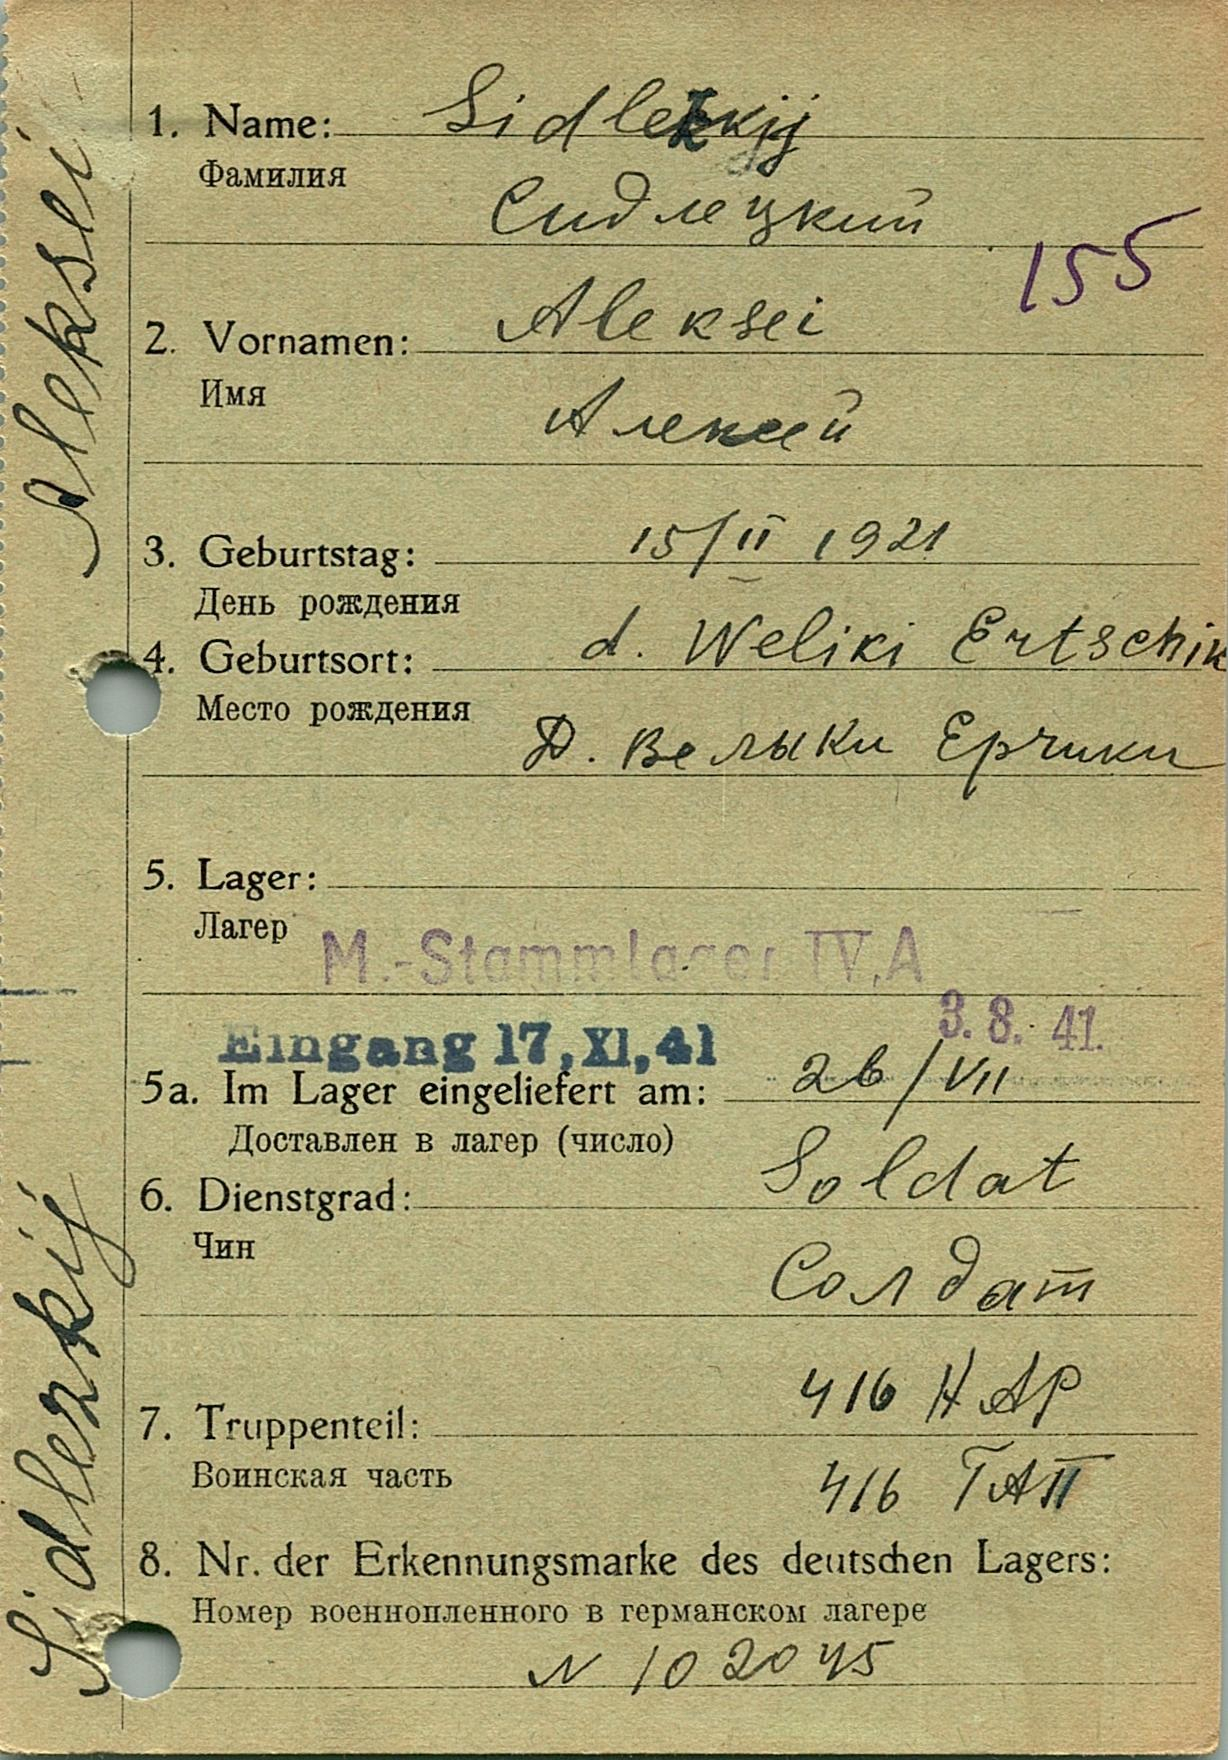 Aleksei
Sidlezkij
1. Name: Sidlezkij
Фамилия
Сидлецкий
155
2. Vornamen: Aleksei
Имя
Алексей
3. Geburtstag: 15/II 1921
День рождения
4. Geburtsort: d. Weliki Ertschik
Место рождения
Д. Велыки Ерчики
5. Lager:
Лагер
M.-Stammlager IV.A
3. 8. 41.
Eingang 17, XI, 41
5a. Im Lager eingeliefert am: 26/VII
Доставлен в лагер (число)
6. Dienstgrad: Soldat
Чин
Солдат
7. Truppenteil: 416 HAP
Воинская часть
416 ГАП
8. Nr. der Erkennungsmarke des deutschen Lagers:
Номер военнопленного в германском лагере
N 102045